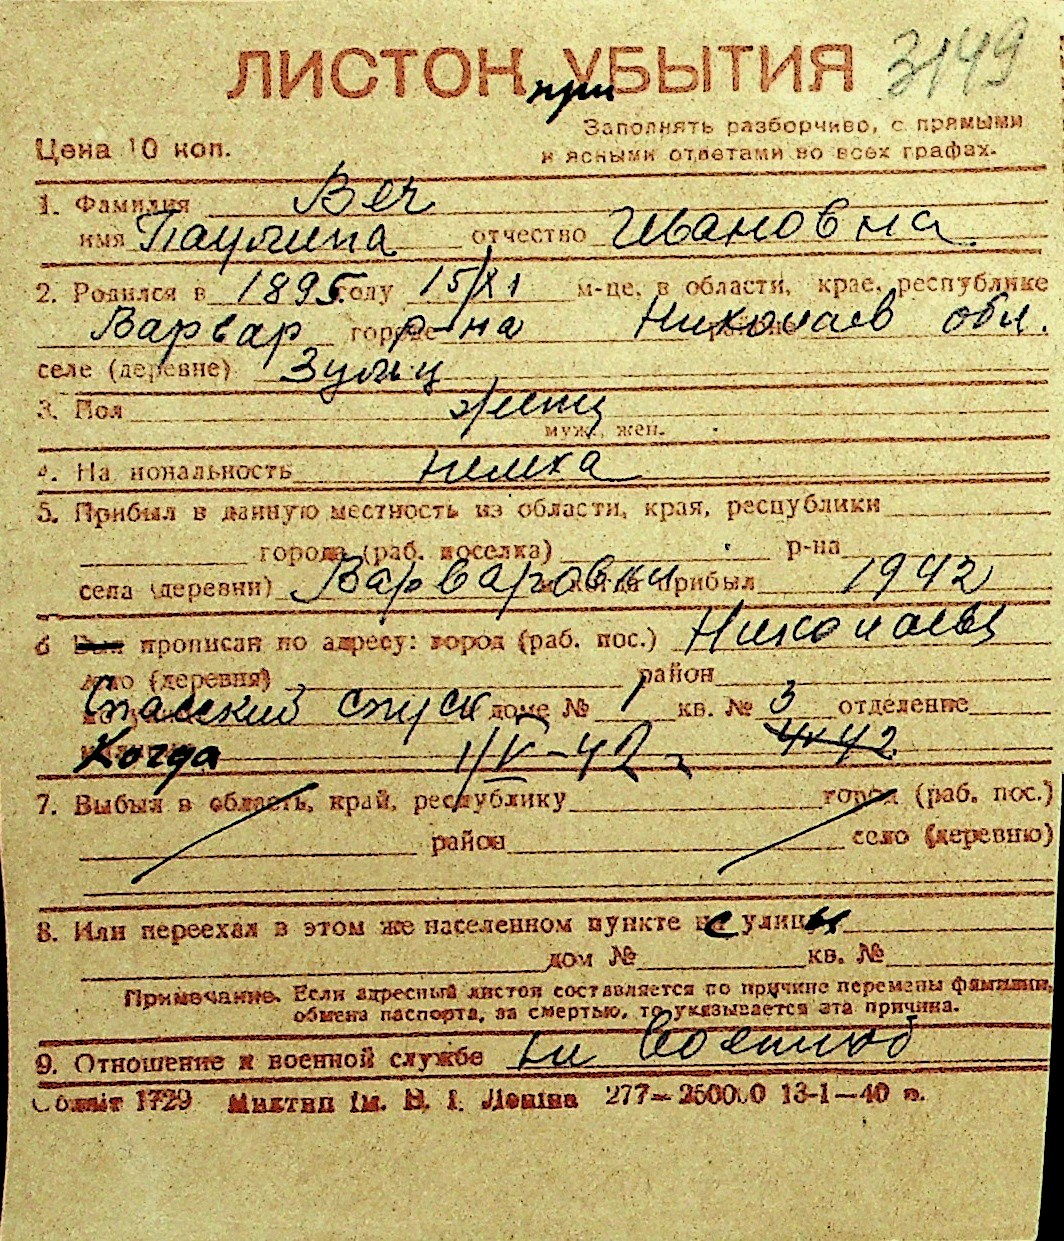 ЛИСТОК УБЫТИЯ 3149
при
Заполнять разборчиво, с прямыми
Цена 10 коп. и ясными ответами во всех графах.
1. Фамилия Веч
имя Паулина отчество Ивановна
2. Родился в 1895 году 15/XI м-це, в области, крае, республике
Варвар городе р-на Николаев обл.
селе (деревне) Зульц
3. Пол женщ
муж., жен.
4. Национальность немка
5. Прибыл в данную местность из области, края, республики
города (раб. поселка) р-на
села (деревни) Варваровки и когда прибыл 1942
6 прописан по адресу: город (раб. пос.) Николаев
село (деревня) район
Спасский спуск доме № 1 кв. № 3 отделение
Когда 1/V-42 г 4х42
7. Выбыл в область, край, республику город (раб. пос.)
район село (деревню)
8. Или переехал в этом же населенном пункте с улицы
дом № кв. №
Примечание. Если адресный листок составляется по причине перемены фамилии,
обмена паспорта, за смертью, то указывается эта причина.
9. Отношение к военной службе
Облліт 1729 Миктип ім. В. І. Леніна 277—250000 13-1—40 п.